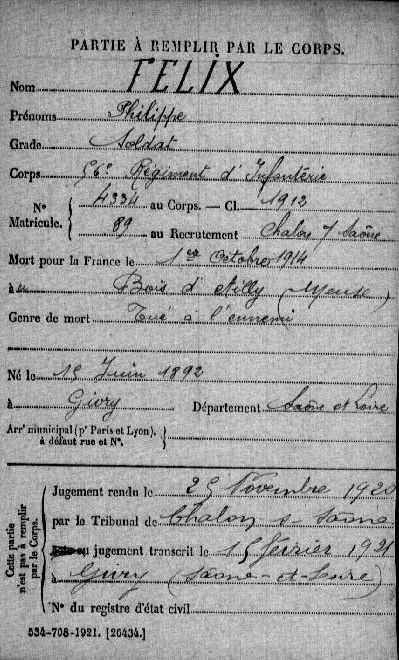 PARTIE À REMPLIR PAR LE CORPS.
Nom FELIX
Prénoms Philippe
Grade Soldat
Corps 56e Régiment d'Infanterie
N° Matricule. { 4334 au Corps. — Cl. 1912
89 au Recrutement Chalon s/ Saône
Mort pour la France le 1er Octobre 1914
à au Bois d'Ailly (Meuse)
Genre de mort Tué à l'ennemi
Né le Juin 1892
à Givry Département Saône et Loire
Arrt municipal (pr Paris et Lyon), à défaut rue et N°. }
Cette partie n'est pas à remplir par le Corps.
Jugement rendu le 25 Novembre 1920
par le Tribunal de Chalon s- Saône
ou jugement transcrit le 15 février 1921
à Givry (Saône-et-Loire)
N° du registre d'état civil
534-708-1921. [26434.]